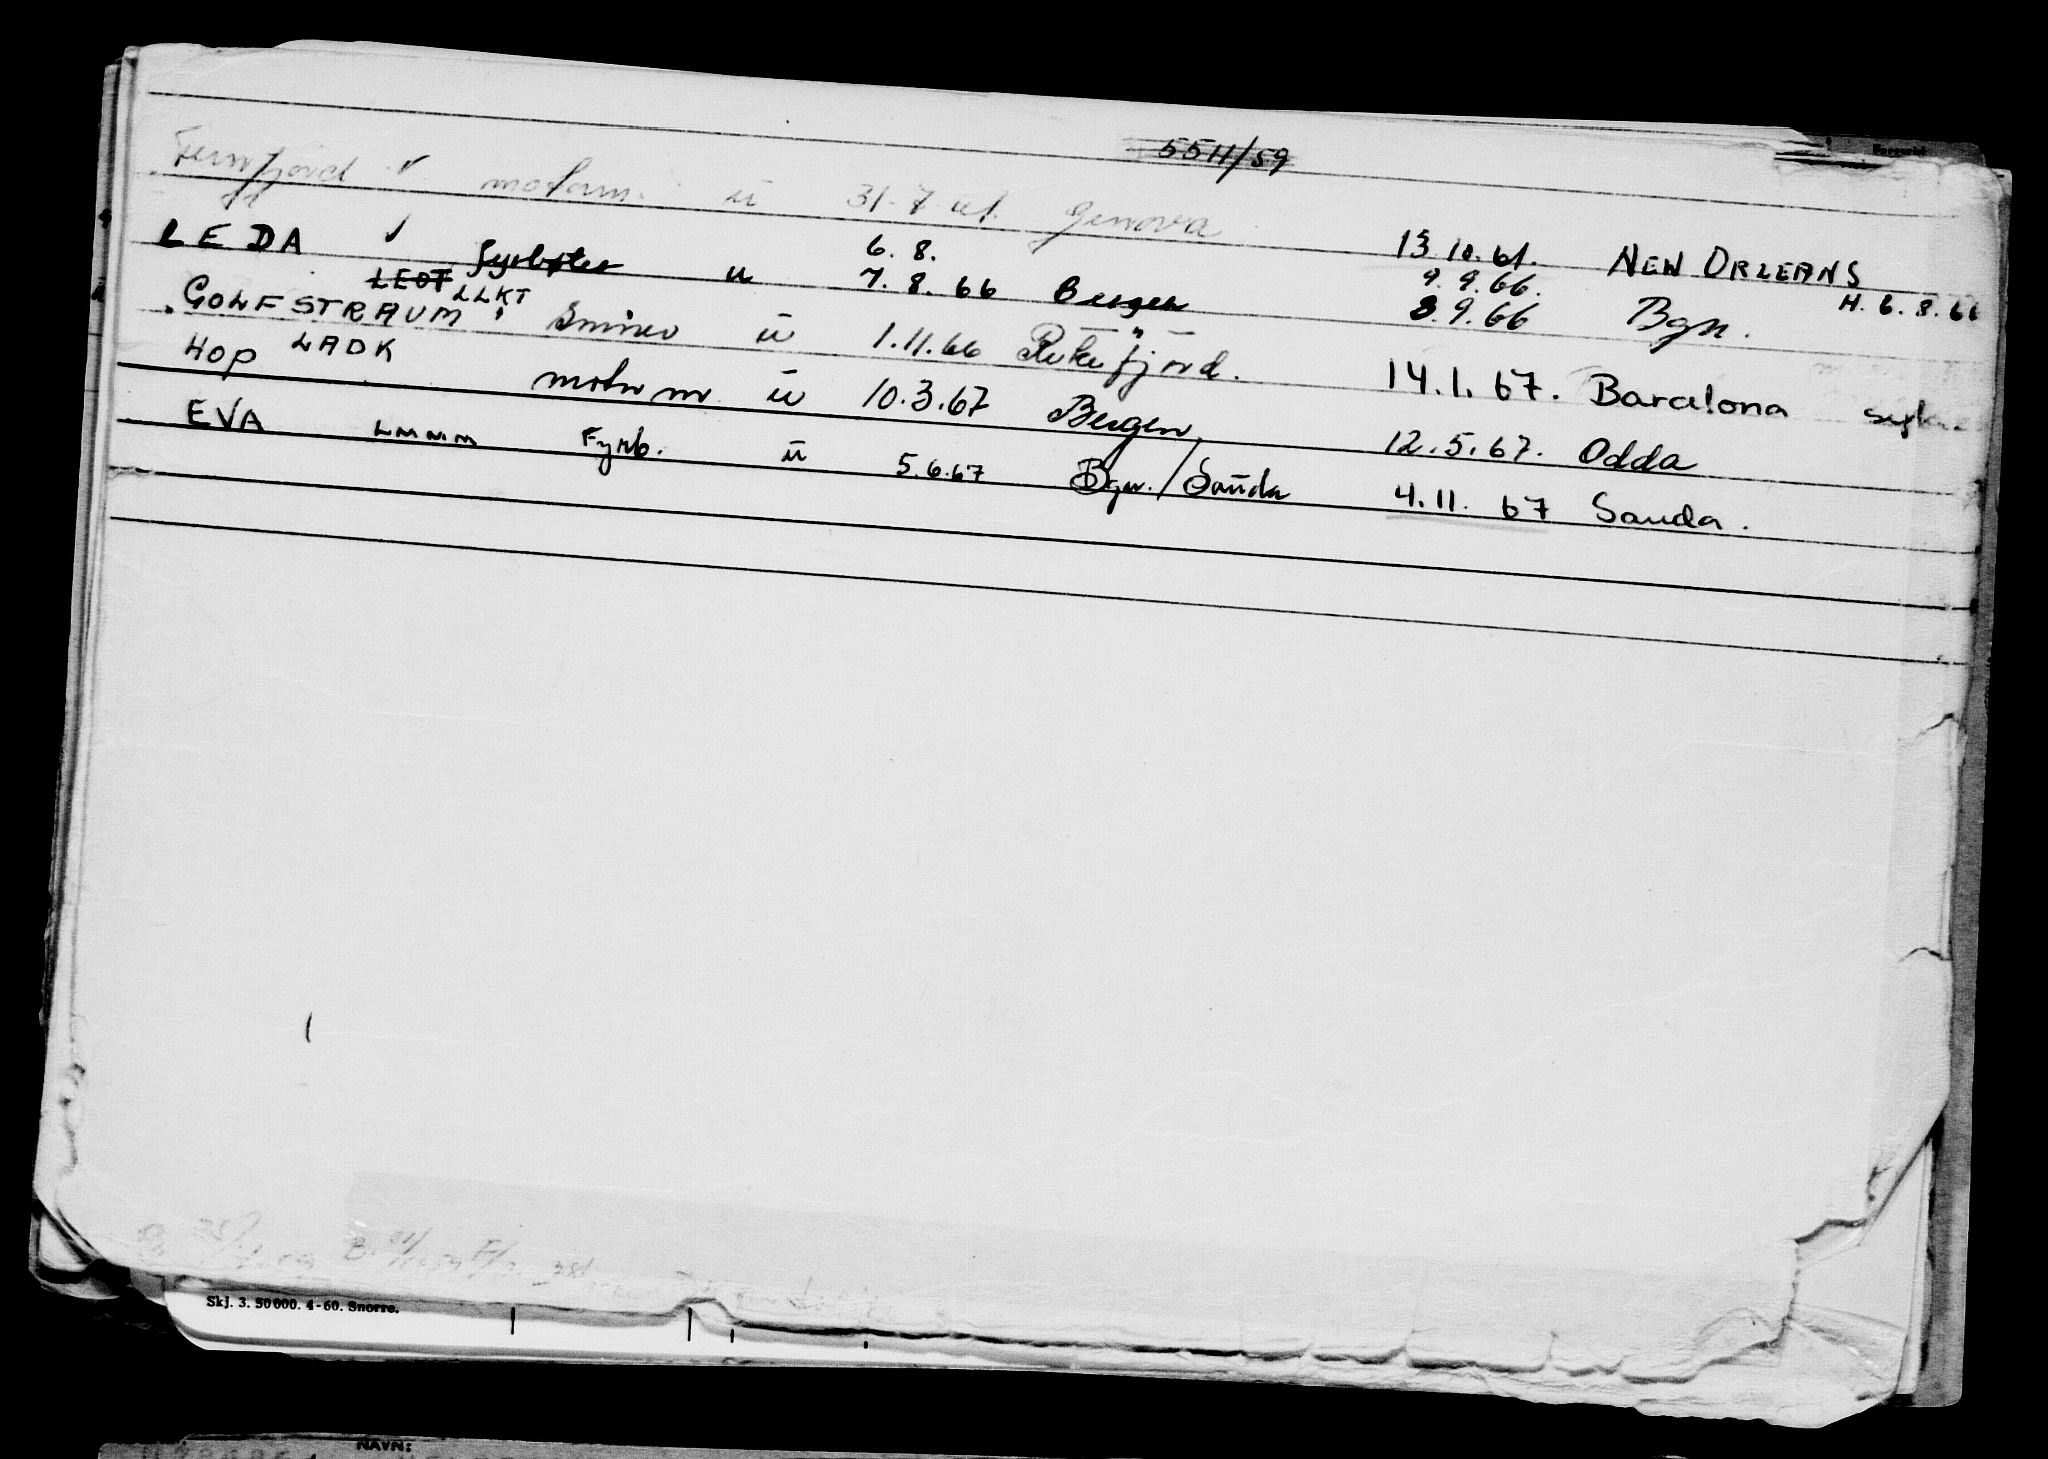 55H/59
Fernfjord ✓ motorm. u 31.7.61. Genova 13.10.61. NEW ORLEANS
LEDA ✓ fyrbøter u 6.8. 7.8.66 Bergen 9.9.66. 8.9.66 Bgn. H. 6.8.66
GOLFSTRAUM LEOT LLKT Smører u 1.11.66 Rekefjord. 14.1.67. Barcelona
HOP LADK motorm. u 10.3.67 Bergen 12.5.67. Odda
EVA LMMM Fyrb. u 5.6.67 Bgn./Sauda 4.11.67 Sauda.
Skj. 3. 50000. 4-60. Snorre.
NAVN: